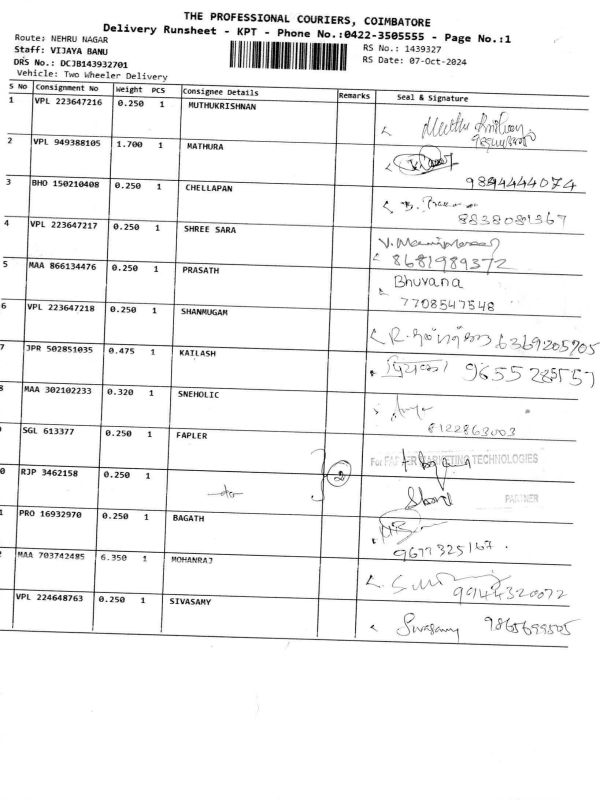 THE PROFESSIONAL COURIERS, COIMBATORE
Delivery Runsheet - KPT - Phone No.:0422-3505555 - Page No.:1
Route: NEHRU NAGAR
RS No.: 1439327
Staff: VIJAYA BANU
RS Date: 07-Oct-2024
DRS No.: DCJB143932701
Vehicle: Two Wheeler Delivery
S No Consignment No Weight PCS Consignee Details Remarks Seal & Signature
1 VPL 223647216 0.250 1 MUTHUKRISHNAN
2 VPL 949388105 1.700 1 MATHURA
9894444074
3 BHO 150210408 0.250 1 CHELLAPAN
8838081367
4 VPL 223647217 0.250 1 SHREE SARA
8681989372
5 MAA 866134476 0.250 1 PRASATH Bhuvana
7708547548
6 VPL 223647218 0.250 1 SHANMUGAM 6369205705
7 JPR 502851035 0.475 1 KAILASH
8 MAA 302102233 0.320 1 SNEHOLIC
8122863003
SGL 613377 0.250 1 FAPLER
MARKETING TECHNOLOGIES
0 RJP 3462158 0.250 1 2
PARTNER
1 PRO 16932970 0.250 1 BAGATH
9677325167.
2 MAA 703742485 6.350 1 MOHANRAJ
9944320072
VPL 224648763 0.250 1 SIVASAMY Sivasamy 9865699505